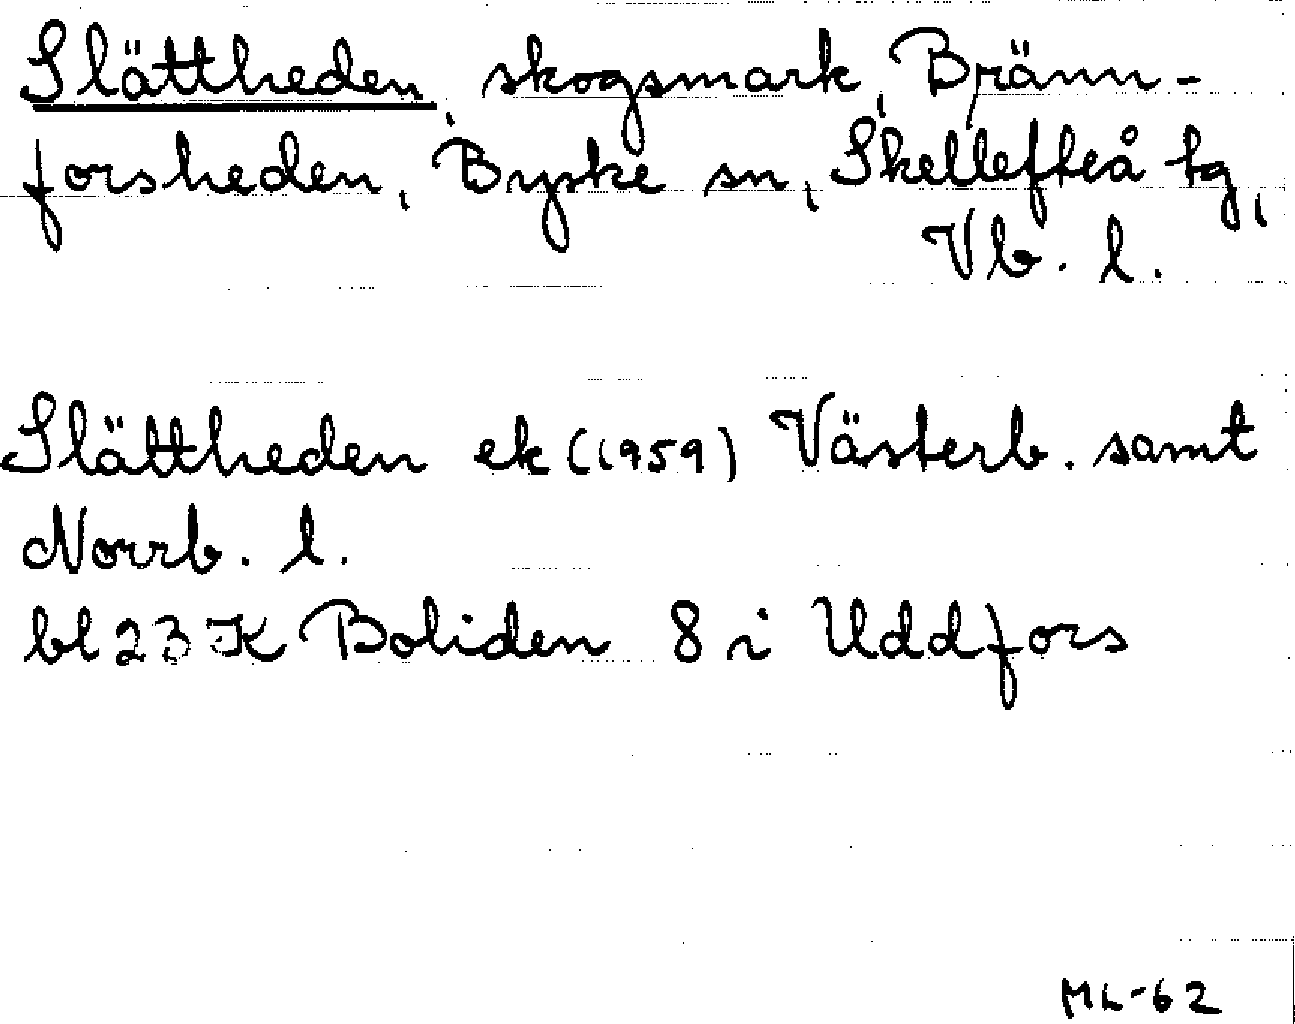 Slättheden, skogsmark, Bränn-
forsheden, Byske sn, Skellefteå tg,
Vb. l.
Slättheden ek (1959) Västerb. samt
Norrb. l.
bl 23 K Boliden 8 i Uddfors
ML-62